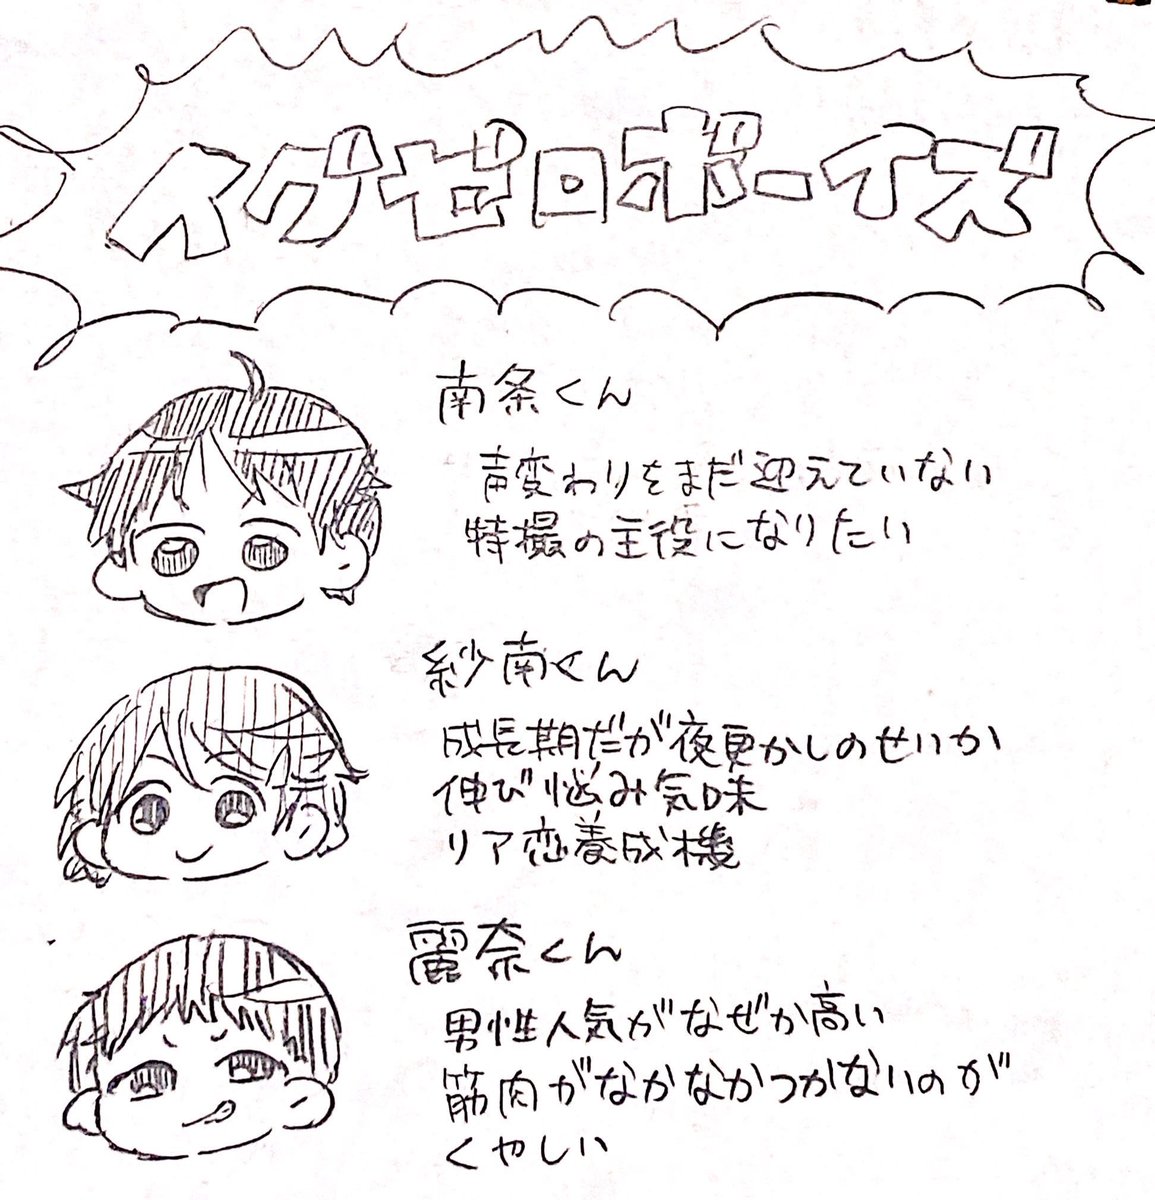 イグゼロボーイズ
南条くん
声変わりをまだ迎えていない
特撮の主役になりたい
紗南くん
成長期だが夜更かしのせいか
伸び悩み気味
リア恋養成機
麗奈くん
男性人気がなぜか高い
筋肉がなかなかつかないのが
くやしい